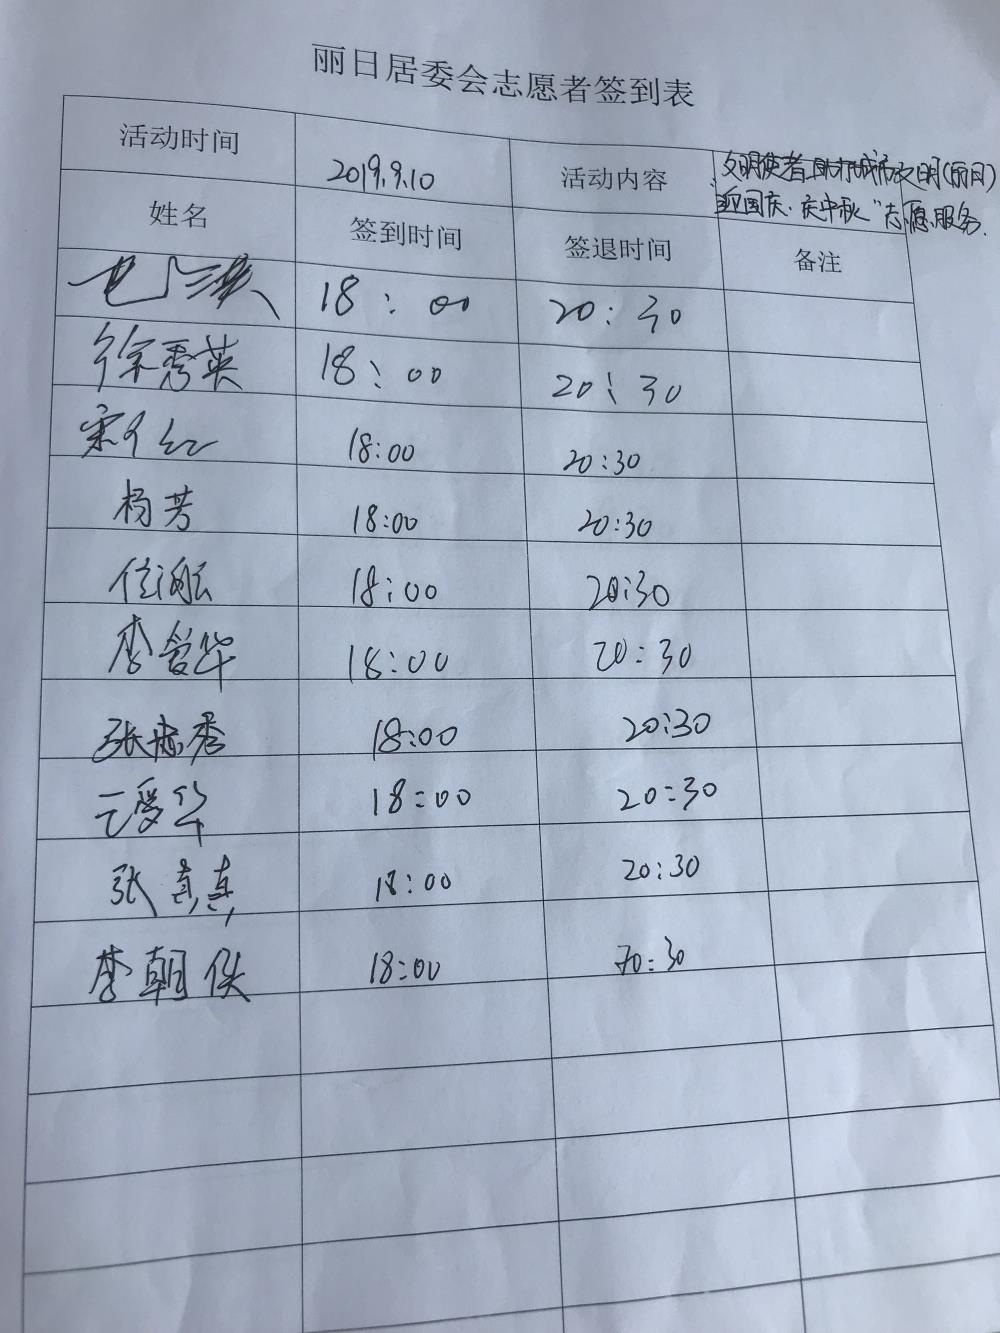 丽日居委会志愿者签到表
活动时间 2019.9.10 活动内容 文明使者 助力城市文明(丽日)
迎国庆·庆中秋"志愿服务.
姓名 签到时间 签退时间 备注
18:00 20:30
徐秀英 18:00 20:30
18:00 20:30
杨芳 18:00 20:30
18:00 20:30
李爱华 18:00 20:30
张惠秀 18:00 20:30
18:00 20:30
张真真 18:00 20:30
李朝侠 18:00 20:30